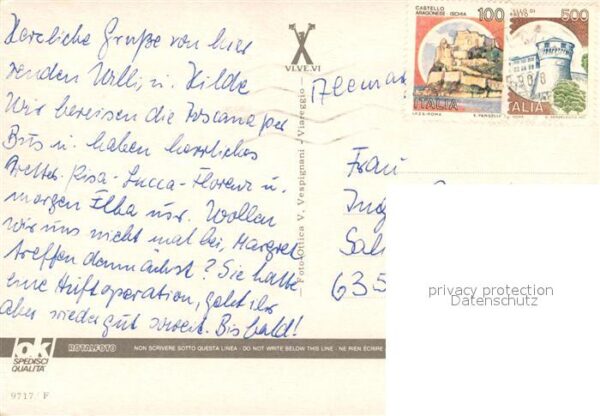 Herzliche Grüße von hier
senden Willi u. Hilde
Wir bereisen die Toscana per
Bus u. haben herrliches
Wetter. Pisa - Lucca - Florenz u.
morgen Elba usw. Wollen
wir uns nicht mal bei Margret
treffen demnächst? Sie hatte
eine Hüftoperation, geht ihr
aber wieder gut soweit. Bis bald!
VI.VE.VI
Foto Ottica V. Vespignani - Viareggio
CASTELLO
ARAGONESE - ISCHIA
100
ITALIA
I.P.Z.S. ROMA
500
ITALIA
ROMA
Frau
635
privacy protection
Datenschutz
lok
SPEDISCI
QUALITÀ
ROTALFOTO
NON SCRIVERE SOTTO QUESTA LINEA - DO NOT WRITE BELOW THIS LINE - NE RIEN ÉCRIRE
9717 F